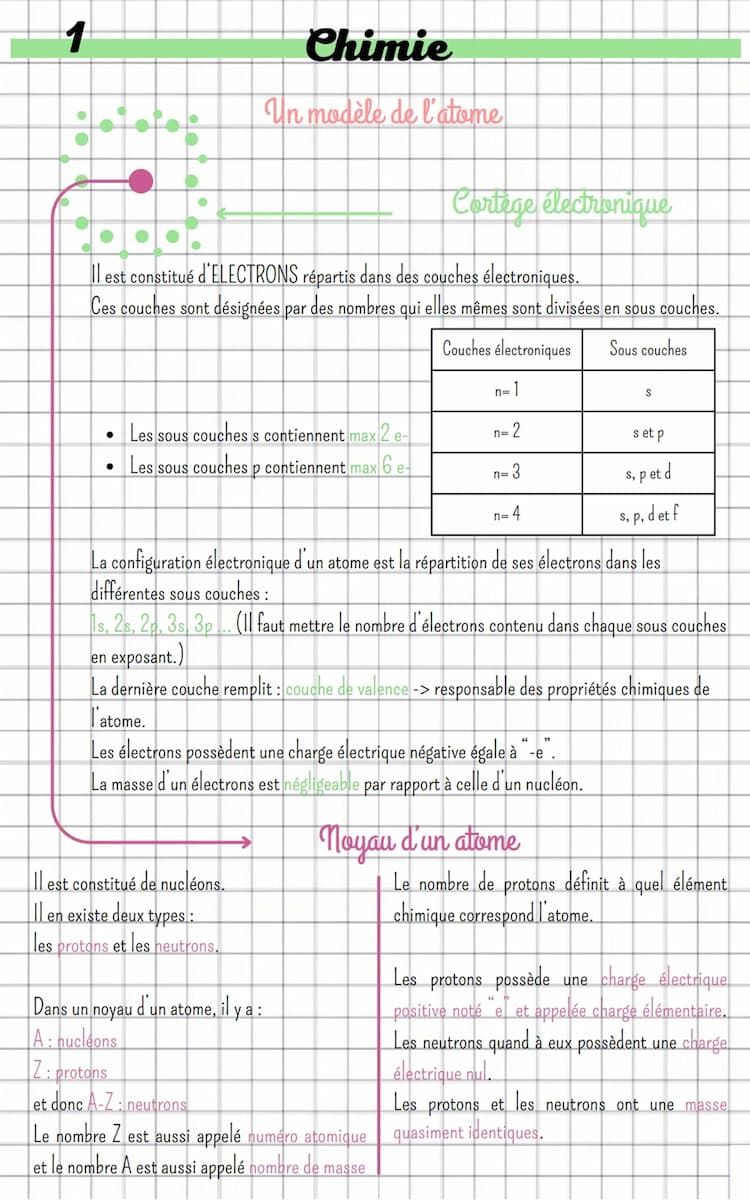 1
Chimie
Un modèle de l'atome
Cortège électronique
Il est constitué d'ELECTRONS répartis dans des couches électroniques.
Ces couches sont désignées par des nombres qui elles mêmes sont divisées en sous couches.
Couches électroniques Sous couches
n= 1 s
n= 2 s et p
n= 3 s, p et d
n= 4 s, p, d et f
• Les sous couches s contiennent max 2 e-
• Les sous couches p contiennent max 6 e-
La configuration électronique d'un atome est la répartition de ses électrons dans les
différentes sous couches :
1s, 2s, 2p, 3s, 3p ... (Il faut mettre le nombre d'électrons contenu dans chaque sous couches
en exposant.)
La dernière couche remplit : couche de valence -> responsable des propriétés chimiques de
l'atome.
Les électrons possèdent une charge électrique négative égale à “-e”.
La masse d'un électrons est négligeable par rapport à celle d'un nucléon.
Noyau d'un atome
Il est constitué de nucléons.
Il en existe deux types :
les protons et les neutrons.
Dans un noyau d'un atome, il y a :
A : nucléons
Z : protons
et donc A-Z : neutrons
Le nombre Z est aussi appelé numéro atomique
et le nombre A est aussi appelé nombre de masse
Le nombre de protons définit à quel élément
chimique correspond l'atome.
Les protons possède une charge électrique
positive noté “e” et appelée charge élémentaire.
Les neutrons quand à eux possèdent une charge
électrique nul.
Les protons et les neutrons ont une masse
quasiment identiques.